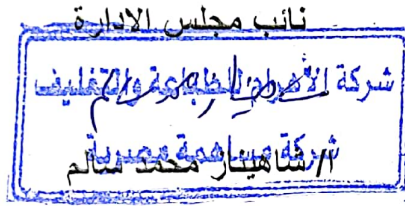 نائب مجلس الادارة
شركة الأهرام للطباعة والتغليف
شركة مساهمة مصرية
أ/ شاهيناز محمد سالم